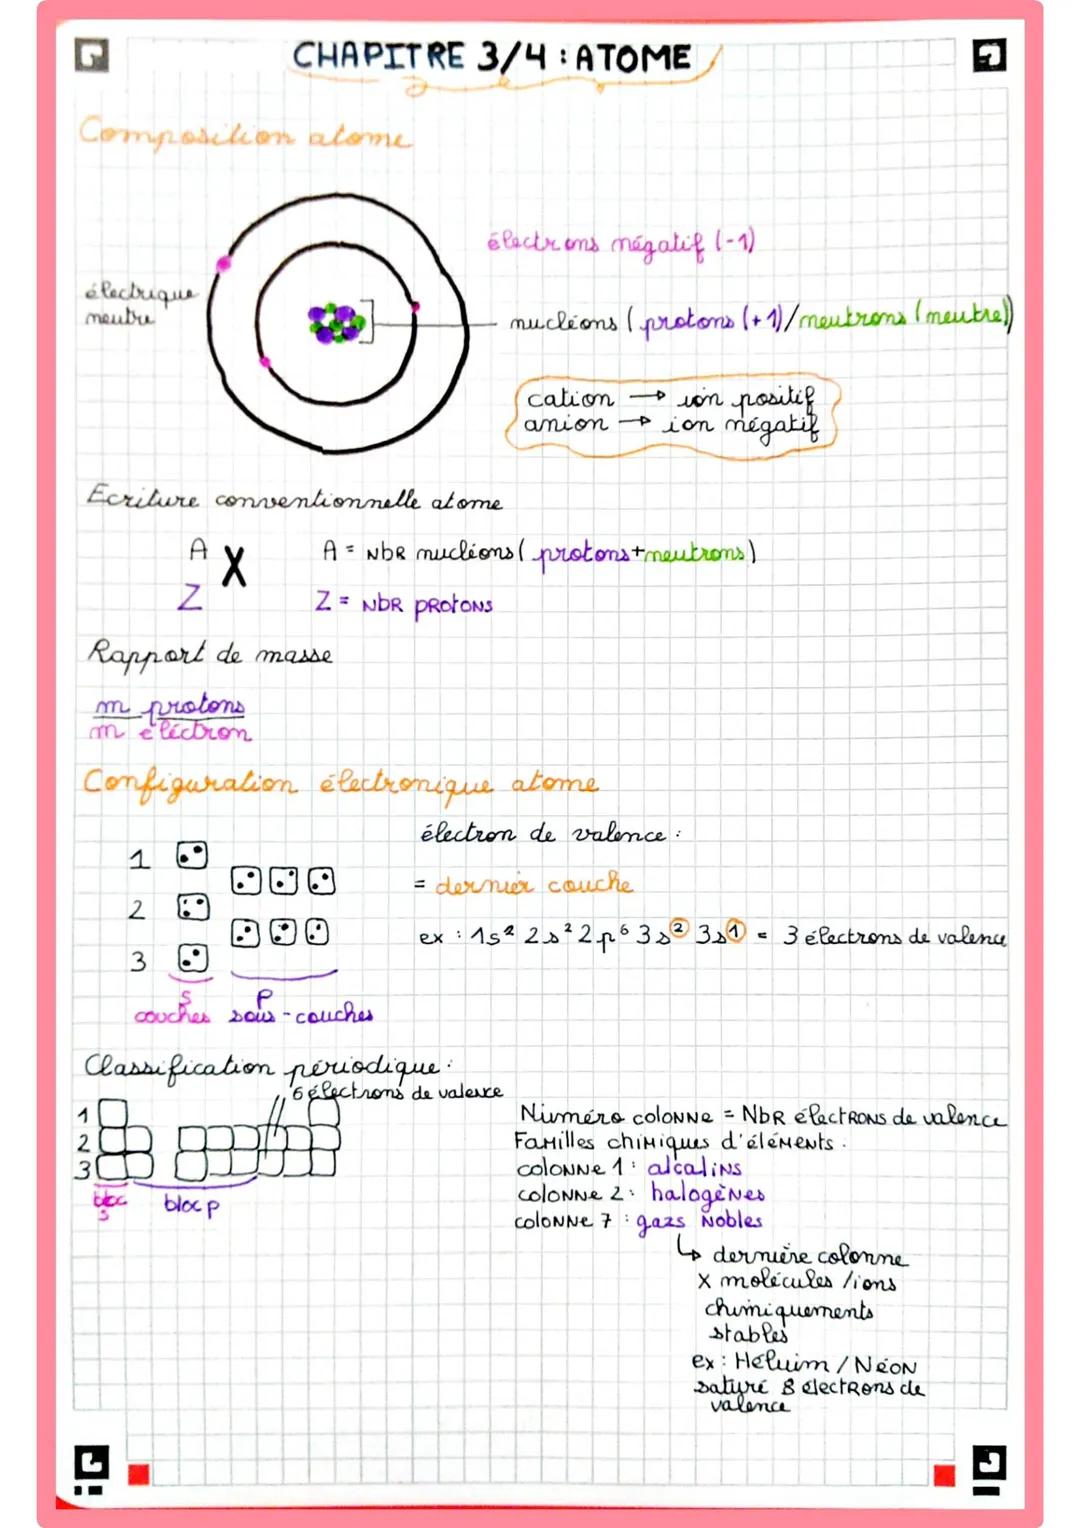 CHAPITRE 3/4 : ATOME
Composition atome
électrons négatif (-1)
électrique
neutre
nucléons (protons (+1)/neutrons (neutre))
cation → ion positif
anion → ion négatif
Ecriture conventionnelle atome
A
X
Z
A = NbR nucléons (protons+neutrons)
Z = NbR PROTONS
Rapport de masse
m protons
m éléctron
Configuration électronique atome
électron de valence :
= dernier couche
ex : 1s² 2s² 2p⁶ 3s² 3s¹ = 3 électrons de valence
1
2
3
s p
couches sous-couches
Classification périodique :
6 électrons de valence
1
2
3
bloc
s
bloc p
Numéro colonne = NbR électRons de valence
Familles chimiques d'éléments :
colonne 1 : alcalins
colonne 2 : halogènes
colonne 7 : gazs Nobles
↳ dernière colonne
X molécules /ions
chimiquements
stables
ex : Héluim / Néon
saturé 8 électRons de
valence